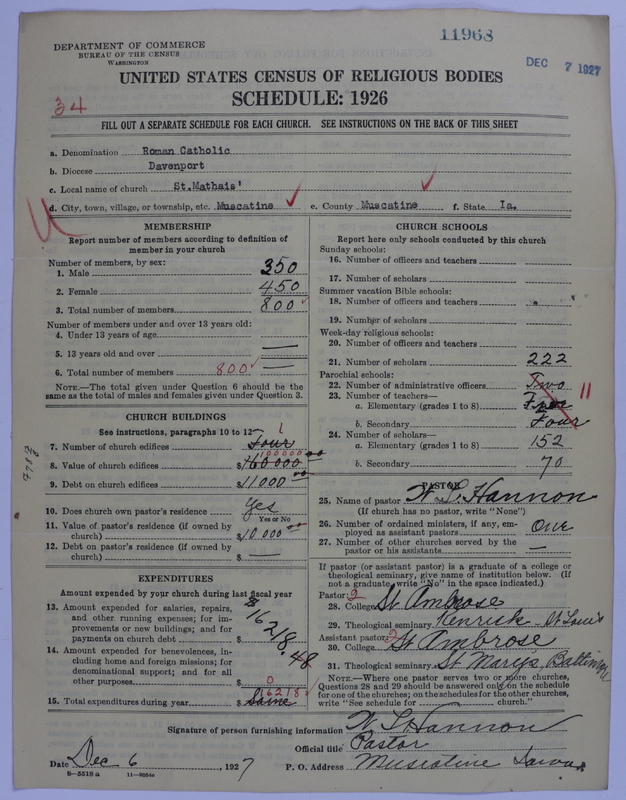 11968
DEC 7 1927
DEPARTMENT OF COMMERCE
BUREAU OF THE CENSUS
WASHINGTON
UNITED STATES CENSUS OF RELIGIOUS BODIES
SCHEDULE: 1926
34
FILL OUT A SEPARATE SCHEDULE FOR EACH CHURCH. SEE INSTRUCTIONS ON THE BACK OF THIS SHEET
a. Denomination Roman Catholic
b. Diocese Davenport
c. Local name of church St.Mathais'
d. City, town, village, or township, etc. Muscatine e. County Muscatine f. State Ia.
MEMBERSHIP
Report number of members according to definition of
member in your church
Number of members, by sex:
1. Male 350
2. Female 450
3. Total number of members 800
Number of members under and over 13 years old:
4. Under 13 years of age
5. 13 years old and over —
6. Total number of members 800 —
NOTE.—The total given under Question 6 should be the
same as the total of males and females given under Question 3.
CHURCH BUILDINGS
See instructions, paragraphs 10 to 12
7. Number of church edifices Four 1
100000
8. Value of church edifices $160000 00
9. Debt on church edifices $11000 00
10. Does church own pastor's residence yes
Yes or No
11. Value of pastor's residence (if owned by
church) $10 000 00
12. Debt on pastor's residence (if owned by
church) $ —
EXPENDITURES
Amount expended by your church during last fiscal year
13. Amount expended for salaries, repairs,
and other running expenses; for im-
provements or new buildings; and for
payments on church debt $ $16218.48
14. Amount expended for benevolences, in-
cluding home and foreign missions; for
denominational support; and for all
other purposes $ 0
15. Total expenditures during year $ 16218 Same
CHURCH SCHOOLS
Report here only schools conducted by this church
Sunday schools:
16. Number of officers and teachers
17. Number of scholars
Summer vacation Bible schools:
18. Number of officers and teachers
19. Number of scholars
Week-day religious schools:
20. Number of officers and teachers
21. Number of scholars 222
Parochial schools:
22. Number of administrative officers Two
23. Number of teachers— 11
a. Elementary (grades 1 to 8)
b. Secondary Four
24. Number of scholars—
a. Elementary (grades 1 to 8) 152
b. Secondary 70
PASTOR
25. Name of pastor W. L. Hannon
(If church has no pastor, write "None")
26. Number of ordained ministers, if any, em-
ployed as assistant pastors One
27. Number of other churches served by the
pastor or his assistants —
If pastor (or assistant pastor) is a graduate of a college or
theological seminary, give name of institution below. (If
not a graduate, write "No" in the space indicated.)
Pastor: 2
28. College St Ambrose
29. Theological seminary Kenrick St Louis
Assistant pastor: 2
30. College St Ambrose
31. Theological seminary St Marys, Baltimore
NOTE.—Where one pastor serves two or more churches,
Questions 28 and 29 should be answered only on the schedule
for one of the churches; on the schedules for the other churches,
write "See schedule for church."
Signature of person furnishing information W L Hannon
Official title Pastor
Date Dec 6, 1927 P. O. Address Muscatine Iowa
8—5518 a